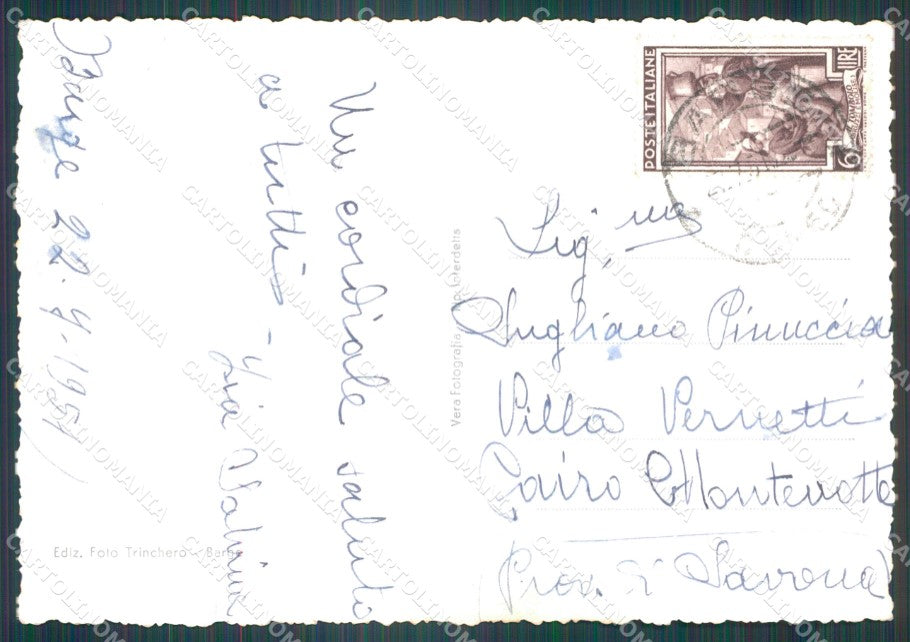 Barge 22. 9. 1951
Un cordiale saluto
a tutti -
Zia
Vera Fotografia
Interdetta
Ediz. Foto Trinchero - Barge
POSTE ITALIANE
LIRE
6
Sig.na
Sugliano Pinuccia
Villa Pervetti
Cairo Montenotte
Prov. di Savona
CARTOLINOMANIA